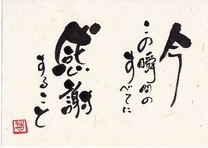 今
この瞬間の
すべてに
感謝
すること